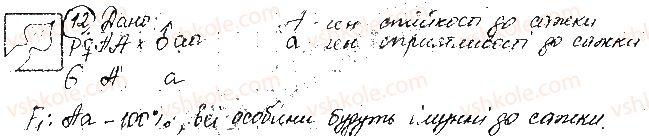 12 Дано: А - ген стійкості до сажки
P: ♀ AA x ♂ aa а - ген сприятливості до сажки
G A a
F₁: Aa - 100%, всі особини будуть імунні до сажки.